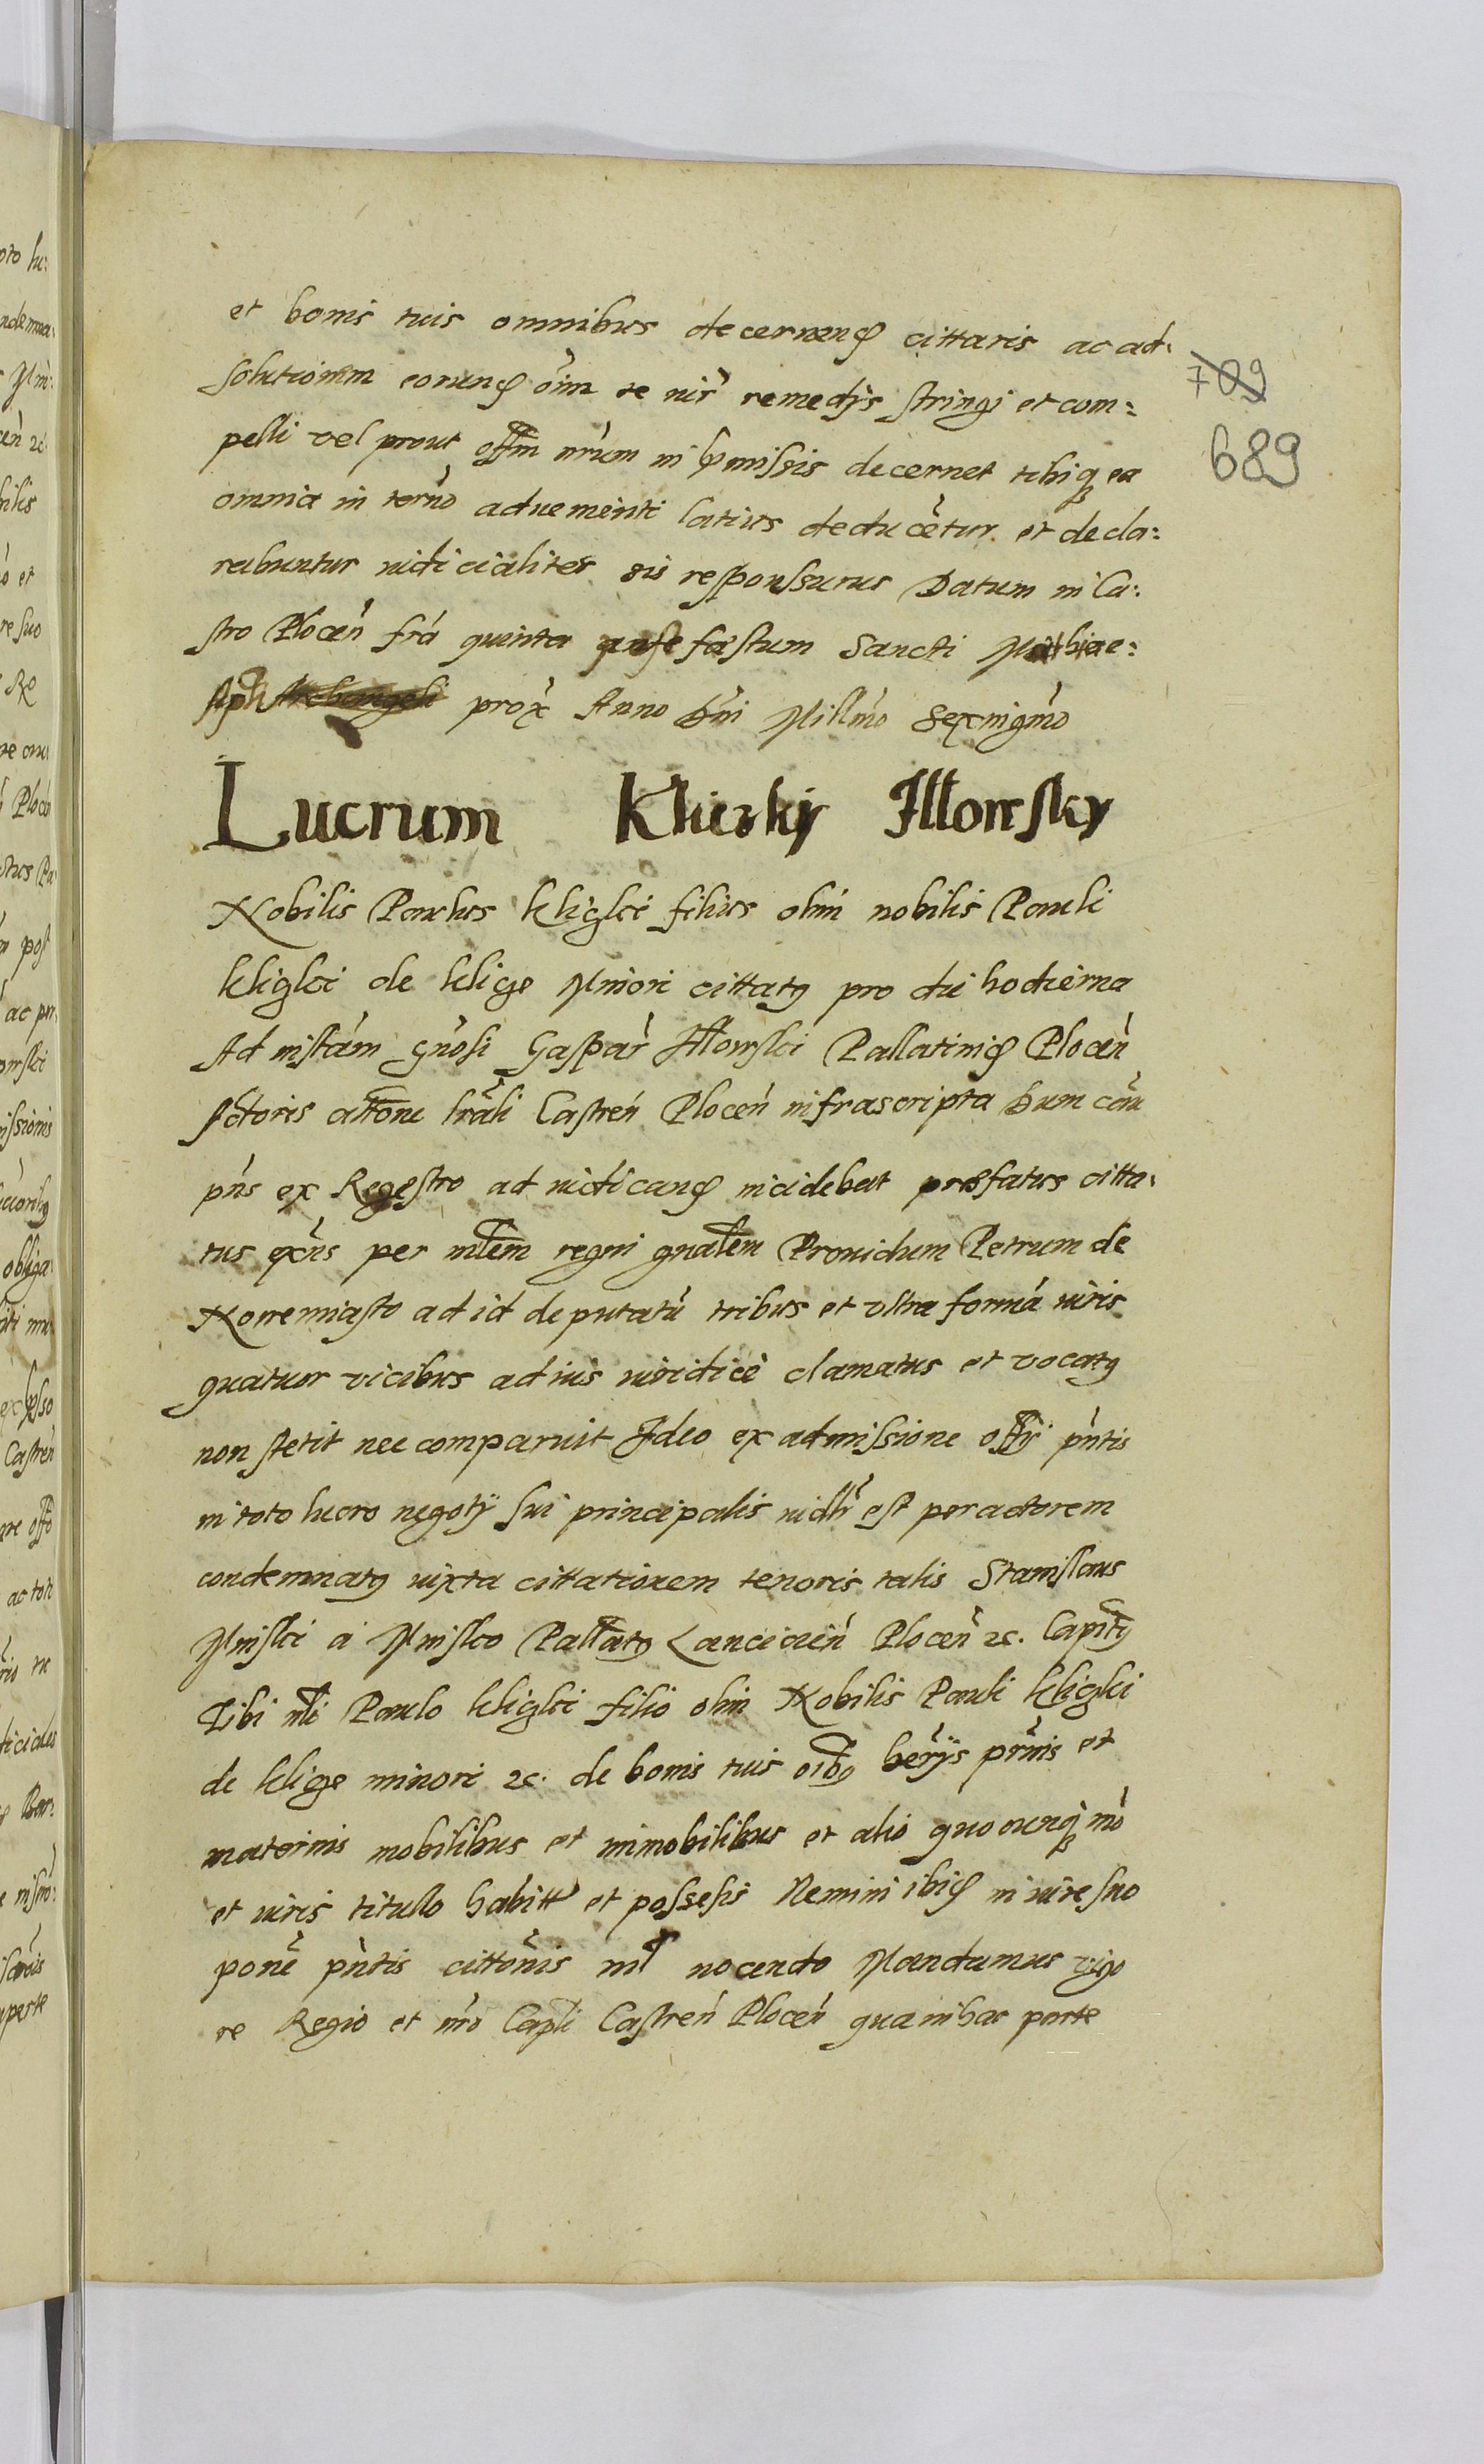 et bonis tuis omnibus decernend cittaris ac ad
solutionem eorund oim te iuris remedijs stringi et com:
pelli vel prout offm nrum in pmissis decernet tibiq ea
omnia in termo aduenienti latius deducetur et decla:
rabuntur iudicialiter sis responssurus Datum in Ca:
stro Plocen fra quinta festum Sancti Mathiae:
Apli Archangeli prox Anno Dni Millmo Sexingmo
Lucrum Kliczky Jllowsky
Nobilis Paulus kligki filius olim nobilis Pauli
kligki de klice Minori cittatus pro die hodierna
Ad instam Gnosi Gaspar Jllowski Pallatinid Plocen
Actoris attone trali Castren Plocen infrascripta Dum cau
pns ex Regestro ad iudicand incidebat praefatus citta
tus exns per mlem regni gnalem Prouidum Petrum de
Nowemiasto ad id deputatu tribus et vltra forma iuris
quatuor vicibus ad ius iuridice clamatus et vocatus
non stetit nec comparuit Jdeo ex admissione offij pntis
in toto lucro negotij sui principalis iudlr est per actorem
condemnatus iuxta cittationem tenoris talis Stanislaus
Minski a Minsko Pallatus Lancicien Plocen 2c. Capits
Tibi nli Paulo kligki filio olim Nobilis Pauli kligki
de klice minori 2c. de bonis tuis oibus herijs prnis et
maternis mobilibus et immobilibus et alio quocunq mo
et iuris titullo habitt et possesis Nemini ibid in iure suo
pone pntis cittonis nil nocendo Mandamus vigo
re Regio et nro Capli Castren Plocen qua in hac parte
709
689